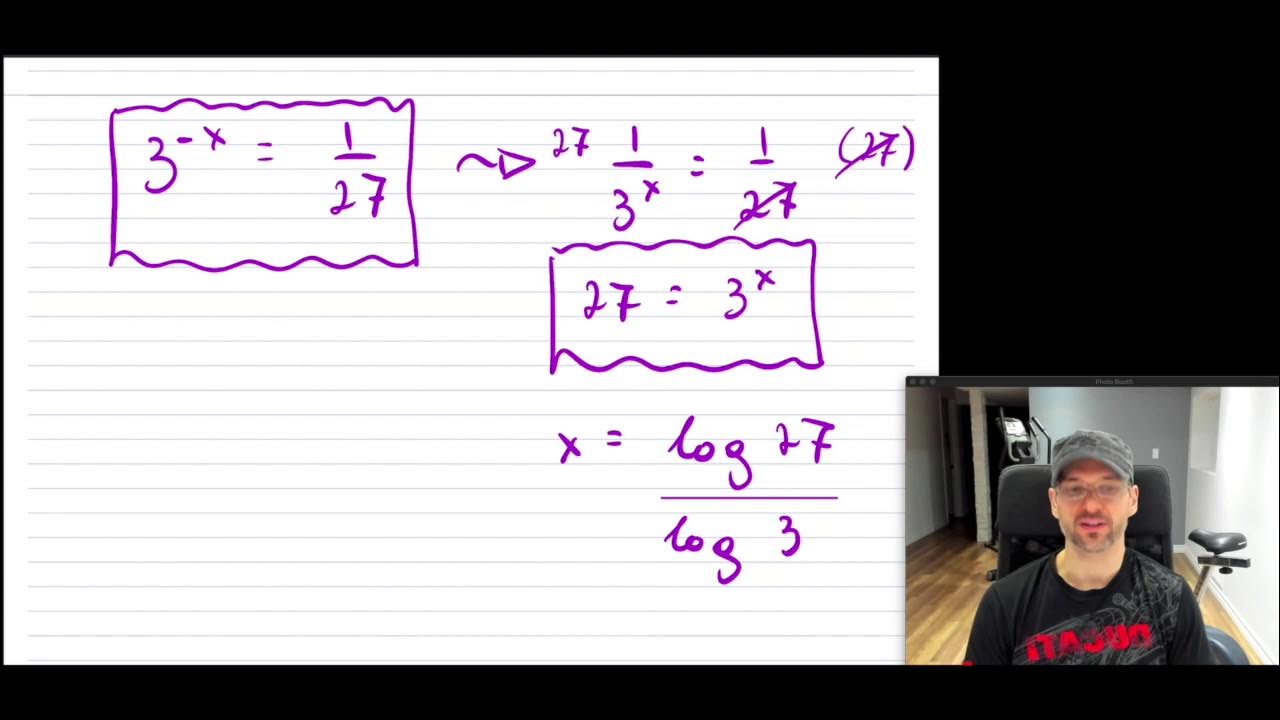 3^{-x} = 1/27 ~▷ 27 1/3^x = 1/27 (27)
27 = 3^x
x = log 27 / log 3
Photo Booth
DUCATI